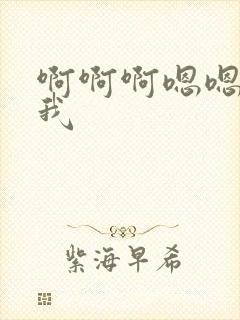 啊啊啊嗯嗯
我
紫海早希